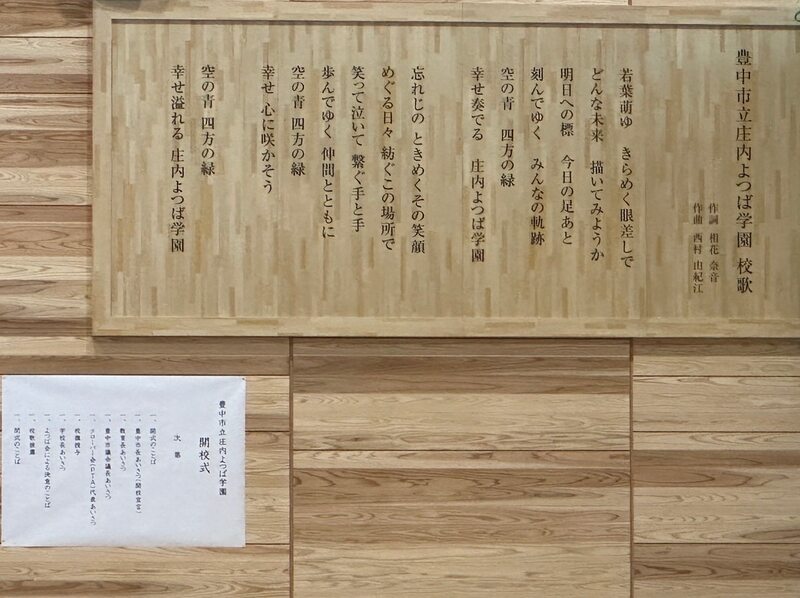 豊中市立庄内よつば学園 校歌
作詞 相花 奈音
作曲 西村 由紀江
若葉萌ゆ きらめく眼差しで
どんな未来 描いてみようか
明日への標 今日の足あと
刻んでゆく みんなの軌跡
空の青 四方の緑
幸せ奏でる 庄内よつば学園
忘れじの ときめくその笑顔
めぐる日々 紡ぐこの場所で
笑って泣いて 繋ぐ手と手
歩んでゆく 仲間とともに
空の青 四方の緑
幸せ 心に咲かそう
空の青 四方の緑
幸せ溢れる 庄内よつば学園
豊中市立庄内よつば学園
開校式
次第
一、開式のことば
一、豊中市長あいさつ(開校宣言)
一、教育長あいさつ
一、豊中市議会議長あいさつ
一、クローバー会(PTA)代表あいさつ
一、校旗授与
一、学校長あいさつ
一、よつば会による決意のことば
一、校歌披露
一、閉式のことば